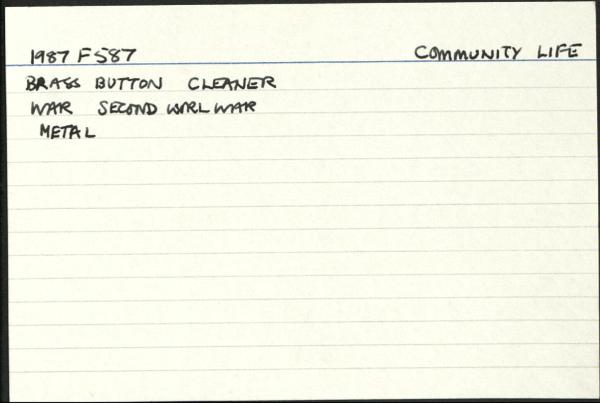 1987 F587 COMMUNITY LIFE
BRASS BUTTON CLEANER
WAR SECOND WORL WAR
METAL